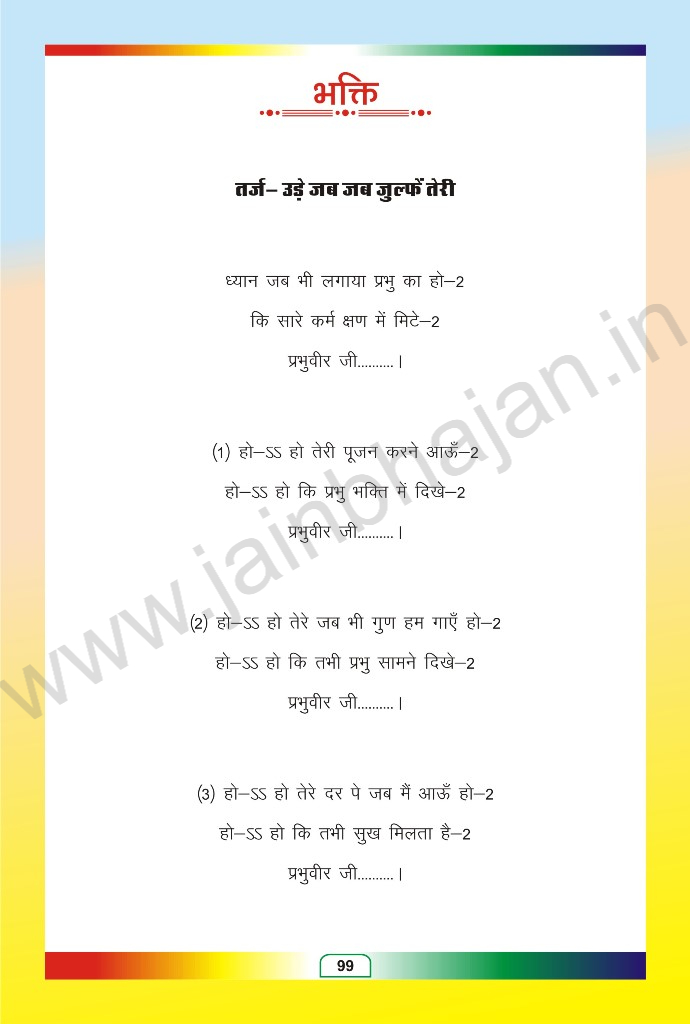 भक्ति
तर्ज– उड़े जब जब जुल्फें तेरी
ध्यान जब भी लगाया प्रभु का हो–2
कि सारे कर्म क्षण में मिटे–2
प्रभुवीर जी..........।
(1) हो–ऽऽ हो तेरी पूजन करने आऊँ–2
हो–ऽऽ हो कि प्रभु भक्ति में दिखे–2
प्रभुवीर जी..........।
(2) हो–ऽऽ हो तेरे जब भी गुण हम गाएँ हो–2
हो–ऽऽ हो कि तभी प्रभु सामने दिखे–2
प्रभुवीर जी..........।
(3) हो–ऽऽ हो तेरे दर पे जब मैं आऊँ हो–2
हो–ऽऽ हो कि तभी सुख मिलता है–2
प्रभुवीर जी..........।
99
www.jainbhajan.in